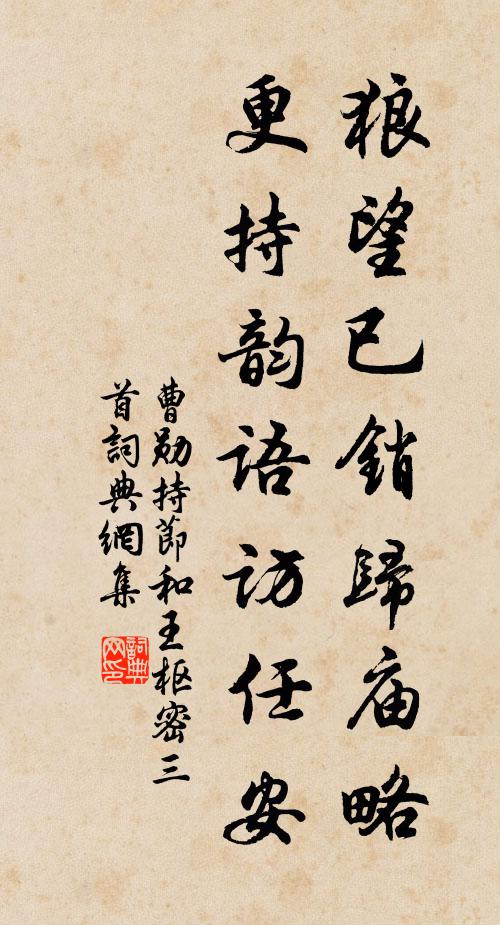 狼望已銷歸庙略
更持韵语访任安
曹勋持節和王枢密三
首詞典網集
詞典
网印